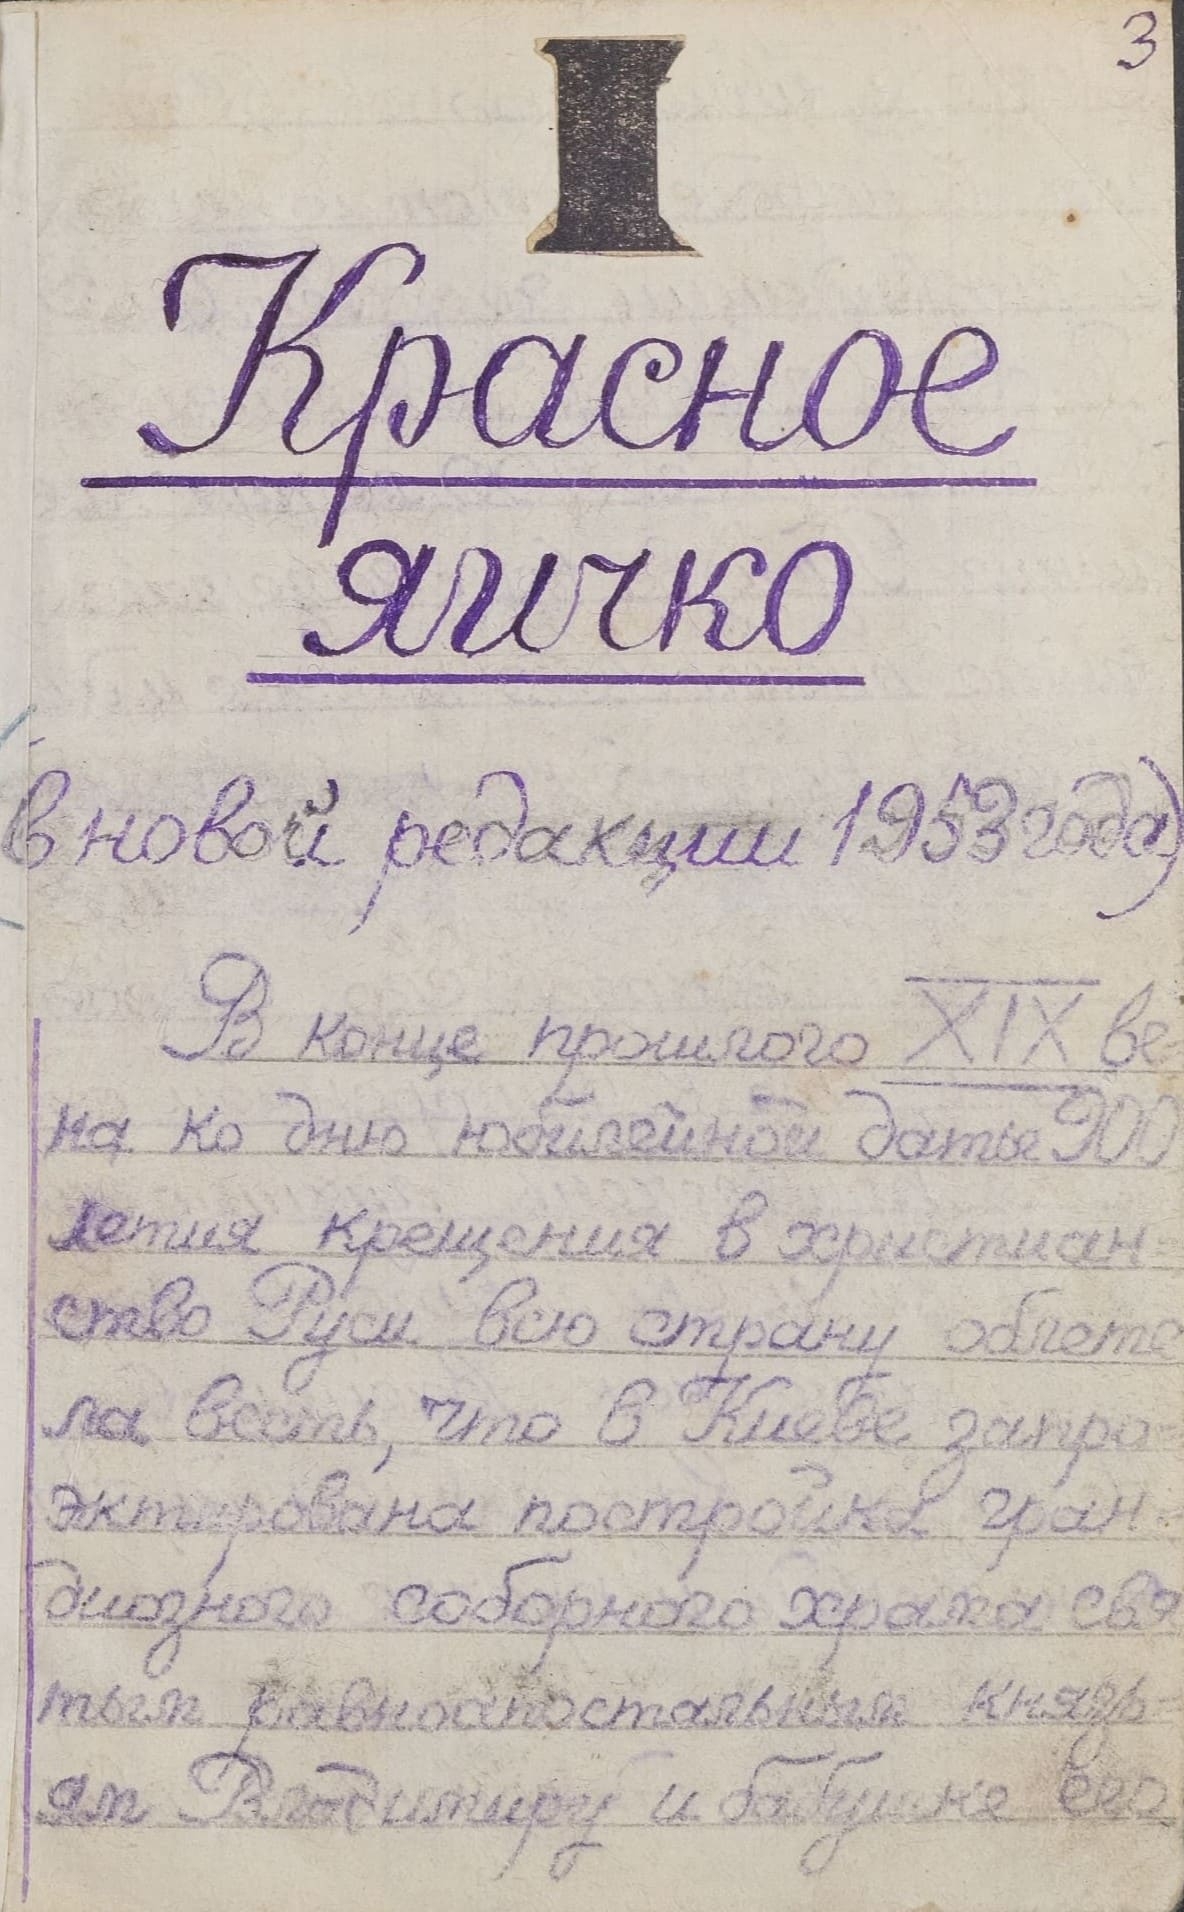 3
I
Красное
яичко
(в новой редакции 1953 года)
В конце прошлого XIX ве-
ка ко дню юбилейной даты 900
летия крещения в христиан-
ство Руси всю страну облете
ла весть, что в Киеве запро-
эктирована постройка гран-
диозного соборного храма свя
тым равноапостальным князь-
ям Владимиру и бабушке его